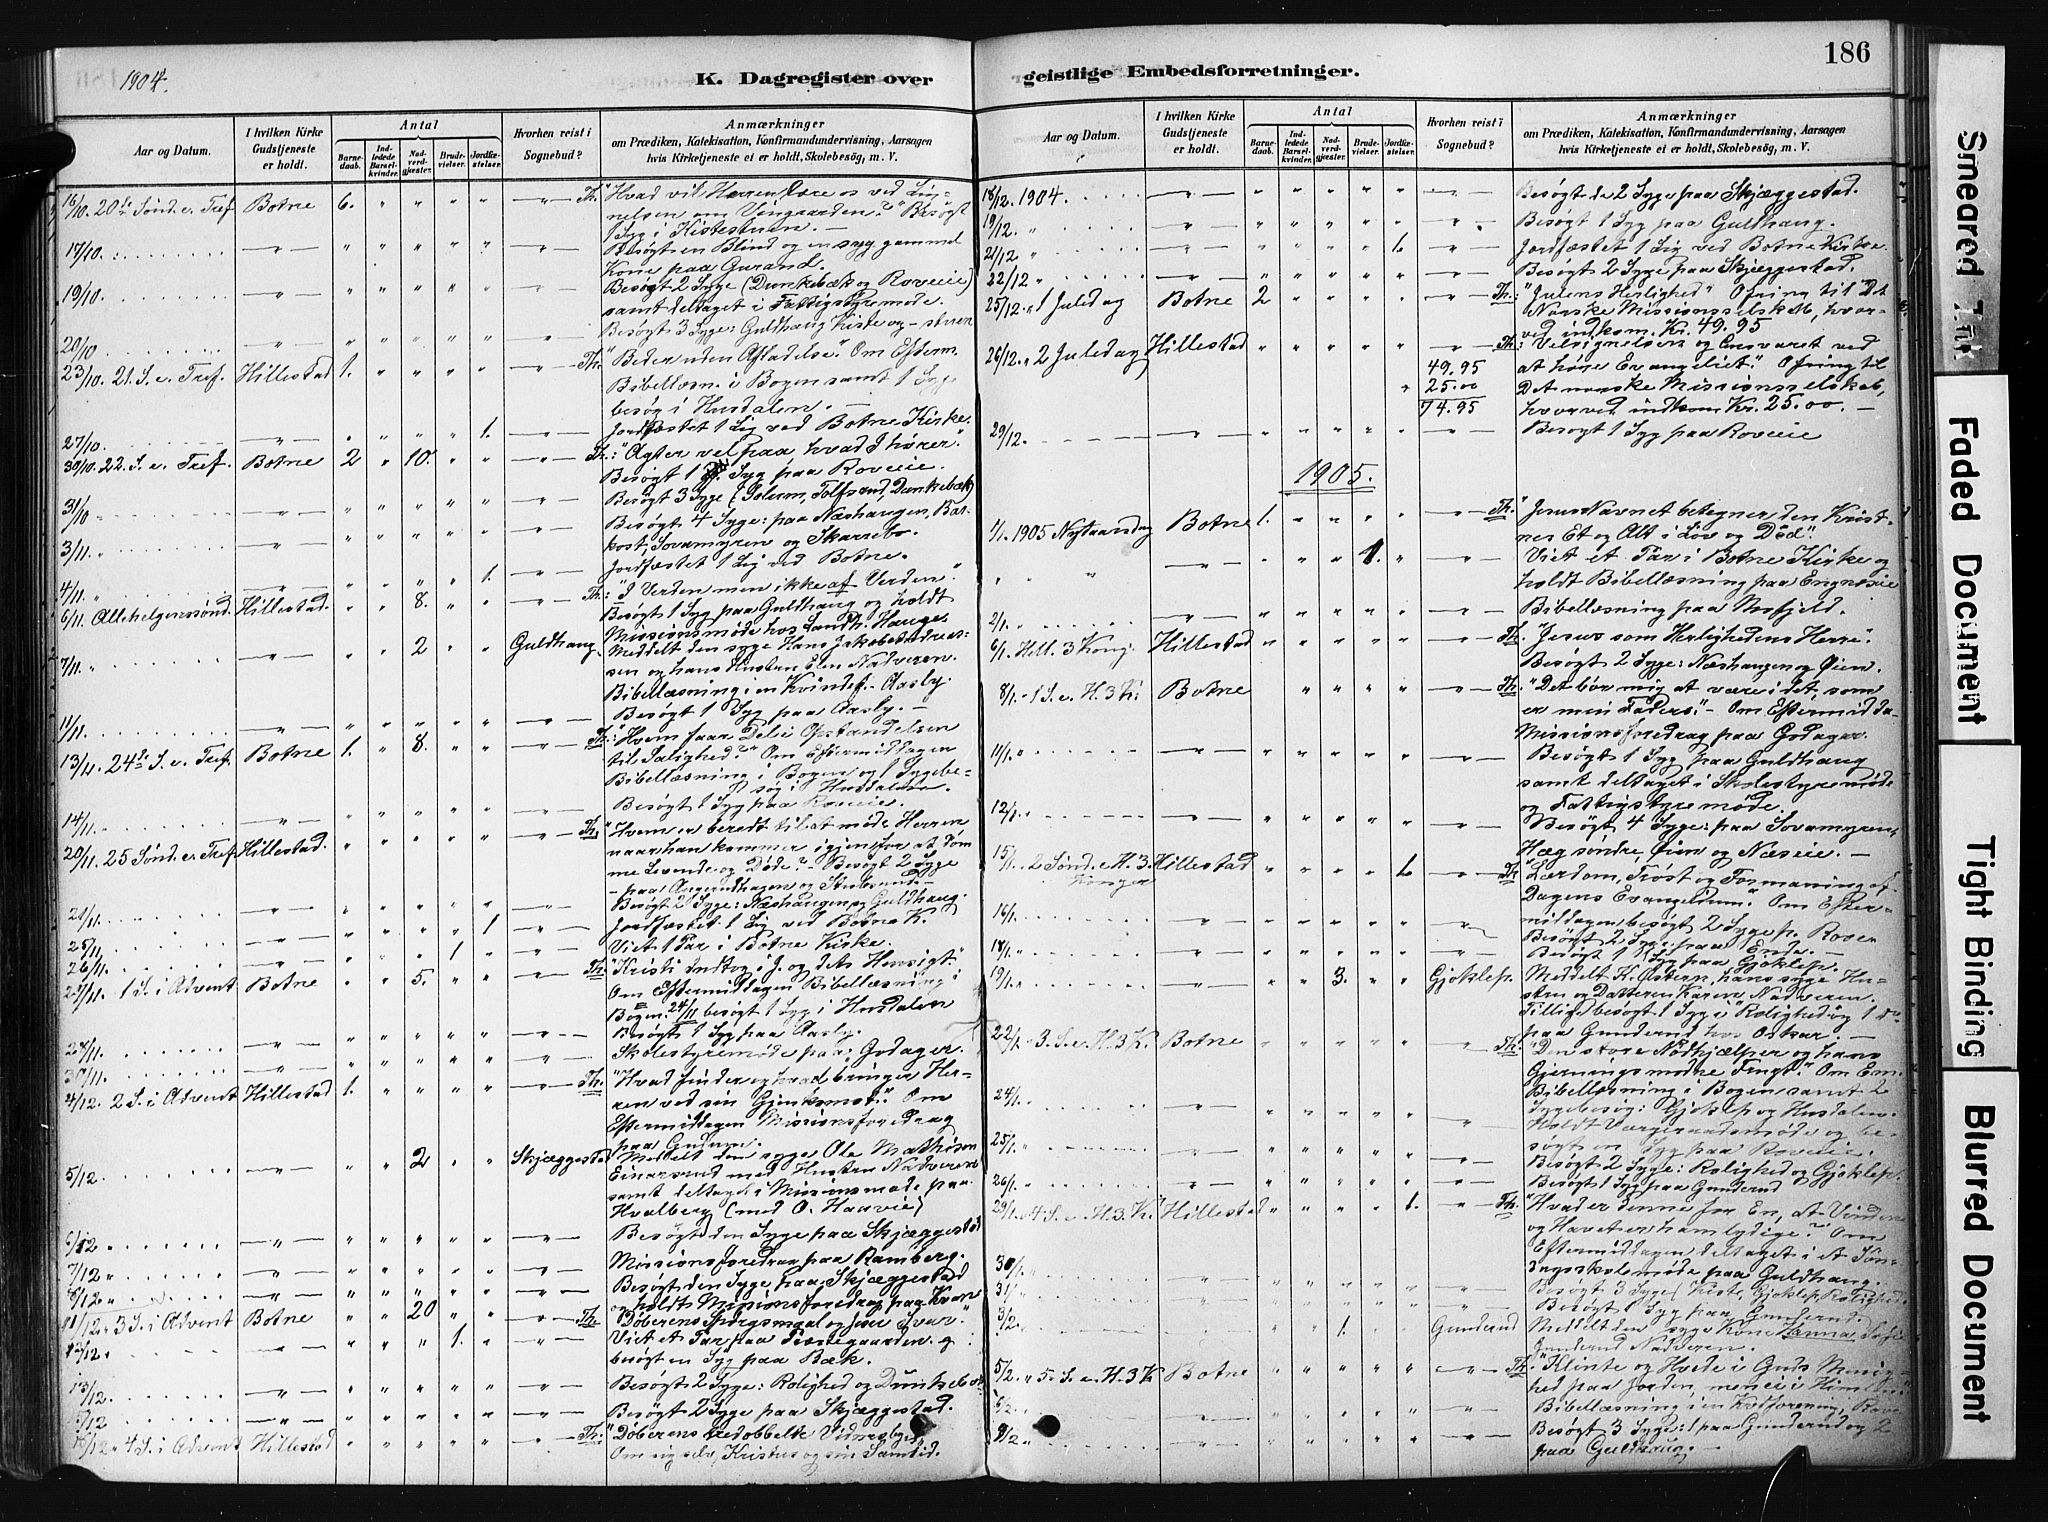 1904.
K. Dagregister over
Aar og Datum.
I hvilken Kirke Gudstjeneste er holdt.
Antal
Barnedaab.
Indledede Barselkvinder.
Nadverdgjæster.
Brudevielser.
Jordfæstelser.
Hvorhen reist i Sognebud?
Anmærkninger
om Prædiken, Katekisation, Konfirmandundervisning, Aarsagen
hvis Kirketjeneste ei er holdt, Skolebesøg, m. V.
16/10. 20de Sønd. e. Tref. Botne 6. " " " " Th. "Hvad vil Herren lære os ved Lig-
nelsen om Vingaarden?" Besøgt
1 Syg i Kistestuen. —
17/10. Besøgt en Blind og en syg gammel
Kone paa Gurand.
19/10. Besøgt 2 Syge (Dunkebæk og Roveie)
samt deltaget i Fattigstyremøde.
20/10 Besøgt 3 Syge: Guldhaug Kiste og -stuen
23/10. 21. S. e. Tref. Hillestad 1. Th. "Beder uden Afladelse". Om Efterm.
Bibellæsn. i Bogen samt 1 Syge
besøg i Husdalen. —
27/10. 1. Jordfæstet 1 Lig ved Botne Kirke.
30/10. 22. S. e. Tref. Botne 2 " 10. Th.: "Agter vel paa hvad I hører."
Besøgt 1 Syg paa Roveie.
31/10 Besøgt 3 Syge (Solum, Tolfsrud, Dunkebæk)
3/11. Besøgt 4 Syge: paa Næshaugen, Bar-
kost, Sovamyren og Skarrebo.
4/11. 1. Jordfæstet 1 Lig ved Botne.
6/11. Allehelgenssønd. Hillestad. 8. Th.: "I Verden men ikke af Verden."
Besøgt 1 Syg paa Guldhaug og holdt
Missionsmøde hos Landh. Hauge.
7/11. 2 Guldhaug. Meddelt den syge Hans Jakob Andreas-
sen og hans Hustru Elen Nadveren.
Bibellæsning i en Kvindef. Aasly.
11/11. Besøgt 1 Syg paa Aasly. —
13/11. 24de S. e. Tref. Botne 1. " 8. Th.: "Hvem faar Del i Opstandelsen
til Salighed?" Om Eftermiddagen
Bibellæsning i Bogen og 1 Sygebe-
søg i Husdalen.
14/11. Besøgt 1 Syg paa Roveie.
20/11. 25 Sønd. e. Tref. Hillestad. Th. "Hvem er beredt til at møde Herren
naar han kommer igjen for at døm
me Levende og Døde?" Besøgt 2 Syge
21/11. Besøgt 2 Syge: Næshaugen og Guldhaug.
25/11. 1 Jordfæstet 1 Lig ved Botne K.
26/11. 1 Viet 1 Par i Botne Kirke.
27/11. 1 S. i Advent Botne 5. Th. "Kristi Indtog i J. og dets Hensigt".
Om Eftermiddagen Bibellæsning i
Bogen. 24/11 besøgt 1 Syg i Husdalen
28/11. Besøgt 1 Syg paa Aasly.
30/11. Skolestyremøde paa Godager.
4/12. 2 S. i Advent Hillestad 1. Th. "Hvad finder og hvad bringer Her-
ren ved sin Gjenkomst." Om
Eftermiddagen Missionsforedrag
paa Gudum.
5/12. 2 Skjæggestad Meddelt den syge Ole Mathisen
Einarsrud med Hustru Nadveren
samt deltaget i Missionsmøde paa
Hvalberg (med O. Haavie)
6/12 Besøgt den Syge paa Skjæggestad
7/12 Missionsforedrag paa Ramberg.
8/12 Besøgt den Syge paa Skjæggestad
og holdt Missionsforedrag paa Kran
11/12 3 S. i Advent Botne 20 Th. "Døberens Spørgsmaal og Jesu Svar".
12/12. 1. Viet et Par paa Præstegaarden og
besøgt en Syg paa Bæk.
13/12. Besøgt 2 Syge: Rolighed og Dunkebæk.
Besøgt 2 Syge paa Skjæggestad.
4 S. i Advent Hillestad Th. "Døberens fredobbelte Vidnesbyrd
Om sig selv, Kristus og sin Samtid.
geistlige Embedsforretninger.
186
Aar og Datum.
I hvilken Kirke Gudstjeneste er holdt.
Antal
Barnedaab.
Indledede Barselkvinder.
Nadverdgjæster.
Brudevielser.
Jordfæstelser.
Hvorhen reist i Sognebud?
Anmærkninger
om Prædiken, Katekisation, Konfirmandundervisning, Aarsagen
hvis Kirketjeneste ei er holdt, Skolebesøg, m. V.
18/12. 1904. Besøgt de 2 Syge paa Skjæggestad.
19/12. Besøgt 1 Syg paa Guldhaug.
21/12 1. Jordfæstet 1 Lig ved Botne Kirke.
22/12 Besøgt 2 Syge paa Skjæggestad.
25/12. 1 Juledag Botne 2 Th.: "Julens Herlighed" Ofring til "Det
Norske Missionsselskab, hvor-
ved indkom. Kr. 49.95
26/12. 2 Juledag Hillestad Th.: "Velsignelsen og Ansvaret ved
49.95 at høre Evangeliet." Ofring til
25.00 Det norske Missionsselskab,
74.95 hvorved indkom Kr. 25.00. —
29/12. Besøgt 1 Syg paa Roveie
1905.
1/1. 1905 Nytaarsdag Botne 1. Th. "Jesu Navnet betegner den Krist-
nes Et og Alt i Liv og Død".
1. Viet et Par i Botne Kirke og
holdt Bibellæsning paa Engnesie
2/1. Bibellæsning paa Mofjeld.
6/1. Hell. 3 Kong. Hillestad Th. "Jesus som Herlighedens Herre".
Besøgt 2 Syge: Næshaugen og Øien.
8/1. 1 S. e. H. 3 K. Botne Th. "Det bør mig at være i det, som
er min Faders." Om Eftermidda-
Missionsforedrag paa Godager.
11/1. Besøgt 1 Syg paa Guldhaug
samt deltaget i Skolestyremøde
og Fattigstyremøde.
12/1. Besøgt 4 Syge: paa Sovamyren,
Hæg søndre, Øien og Næseie. —
15/1. 2 Sønd. e. H. 3 Konger Hillestad 1. Th. "Lærdom, Trøst og Formaning af
Dagens Evangelium". Om Efter-
middagen besøgt 2 Syge p. Rovei
16/1. Besøgt 2 Syge paa Enda.
18/1. Besøgt 1 Syg paa Gjøklep.
19/1. 3. Gjøklep. Meddelt K. Østern, hans syge Hu-
stru og Datteren Karen Nadveren.
Tillige besøgt 1 Syg i Rolighed og 1 do
paa Gunderud hos Oskar. —
22/1. 3. S. e. H. 3 K. Botne Th. "Den store Nødhjælper og hans
Gjernings modne Frugt." Om Em.
Bibellæsning i Bogen samt 2
Sygebesøg: Gjøklep og Husdalen.
24/1. Holdt Værgeraadsmøde og be-
søgt en Syg paa Roveie.
25/1. Besøgt 2 Syge: Rolighed og Gjøklep.
26/1. Besøgt 1 Syg paa Gunderud
29/1. 4 S. e. H. 3 K. Hillestad 1. Th. "Hvad er denne for En, at Vindene
og Havet er ham lydige?" Om
Eftermiddagen deltaget i et Søn-
dagsskolemøde paa Guldhaug.
30/1. Besøgt 3 Syge (Kiste, Gjøklep, Rolighed
31/1. Besøgt 1 Syg paa Gunderud.
3/2. 1. Gunderud Meddelt den syge Kone Hanna
Gunderud Nadveren.
5/2. 5. S. e. H. 3 K. Botne Th. "Klinte og Hvede i Guds Menig-
hed paa Jorden, men ei i Himlen"
6/2. Bibellæsning i en Kvdforening,
8/2. Besøgt 3 Syge: 1 paa Gunderud og 2
paa Guldhaug. —
Smeared Ink
Faded Document
Tight Binding
Blurred Document